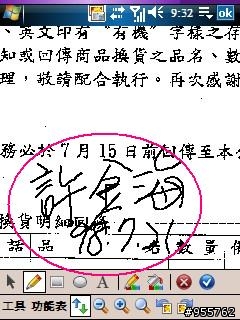 9:32 ok
、英文印有 "有機" 字樣之存
知或回傳商品換貨之品名、數
理,敬請配合執行。再次感謝
務必於 7 月 15 日前回傳至本公
許金海
換貨明細回
98.7.
話 品 名 數 量 備
工具 功能表
#955762